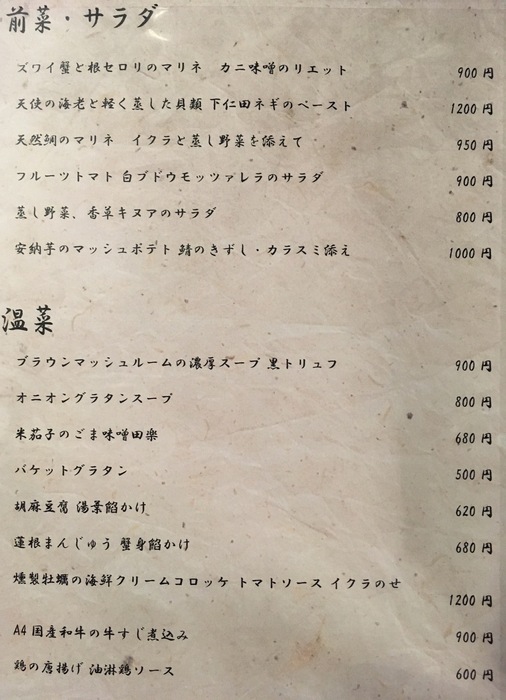 前菜・サラダ
ズワイ蟹と根セロリのマリネ　カニ味噌のリエット 900円
天使の海老と軽く蒸した貝類 下仁田ネギのペースト 1200円
天然鯛のマリネ　イクラと蒸し野菜を添えて 950円
フルーツトマト 白ブドウモッツァレラのサラダ 900円
蒸し野菜、香草キヌアのサラダ 800円
安納芋のマッシュポテト 鯖のきずし・カラスミ添え 1000円
温菜
ブラウンマッシュルームの濃厚スープ 黒トリュフ 900円
オニオングラタンスープ 800円
米茄子のごま味噌田楽 680円
バケットグラタン 500円
胡麻豆腐 湯葉餡かけ 620円
蓮根まんじゅう 蟹身餡かけ 680円
燻製牡蠣の海鮮クリームコロッケ トマトソース イクラのせ
1200円
A4国産和牛の牛すじ煮込み 900円
鶏の唐揚げ 油淋鶏ソース 600円